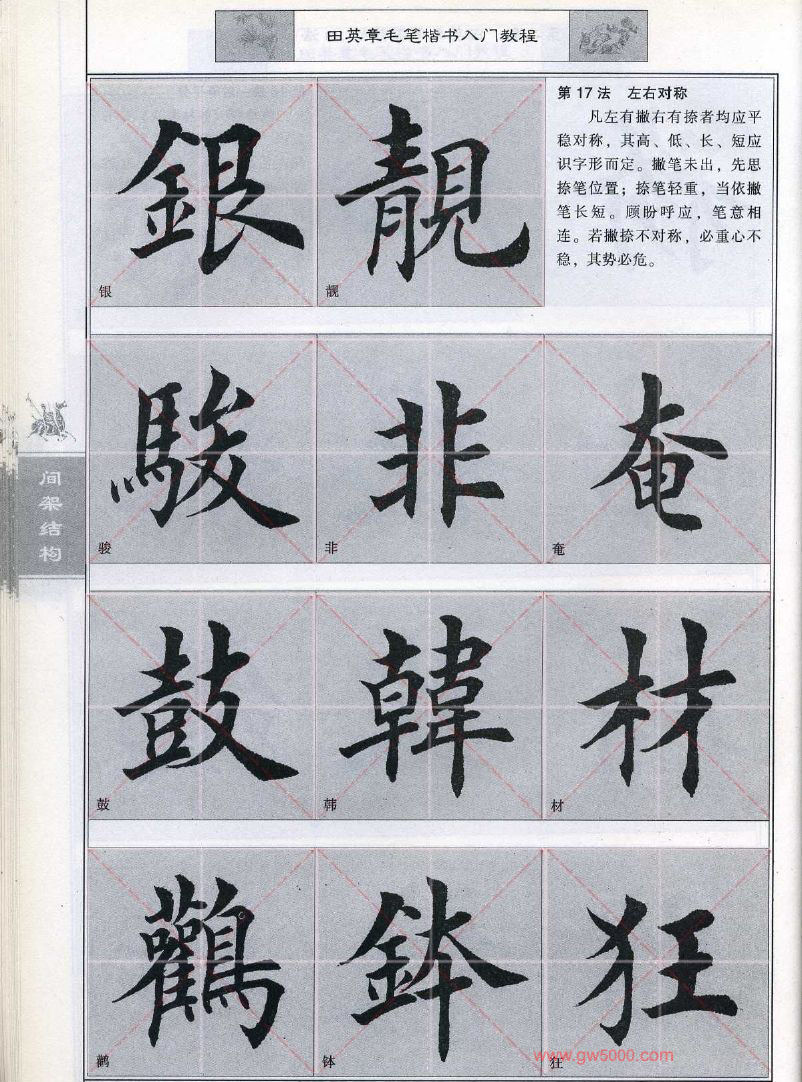 田英章毛笔楷书入门教程
銀 靚
银 靓
第17法 左右对称
凡左有撇右有捺者均应平
稳对称，其高、低、长、短应
识字形而定。撇笔未出，先思
捺笔位置；捺笔轻重，当依撇
笔长短。顾盼呼应，笔意相
连。若撇捺不对称，必重心不
稳，其势必危。
駿 非 奄
骏 非 奄
间架结构
鼓 韓 材
鼓 韩 材
鸛 鉢 狂
鹳 钵 狂
www.gw5000.com